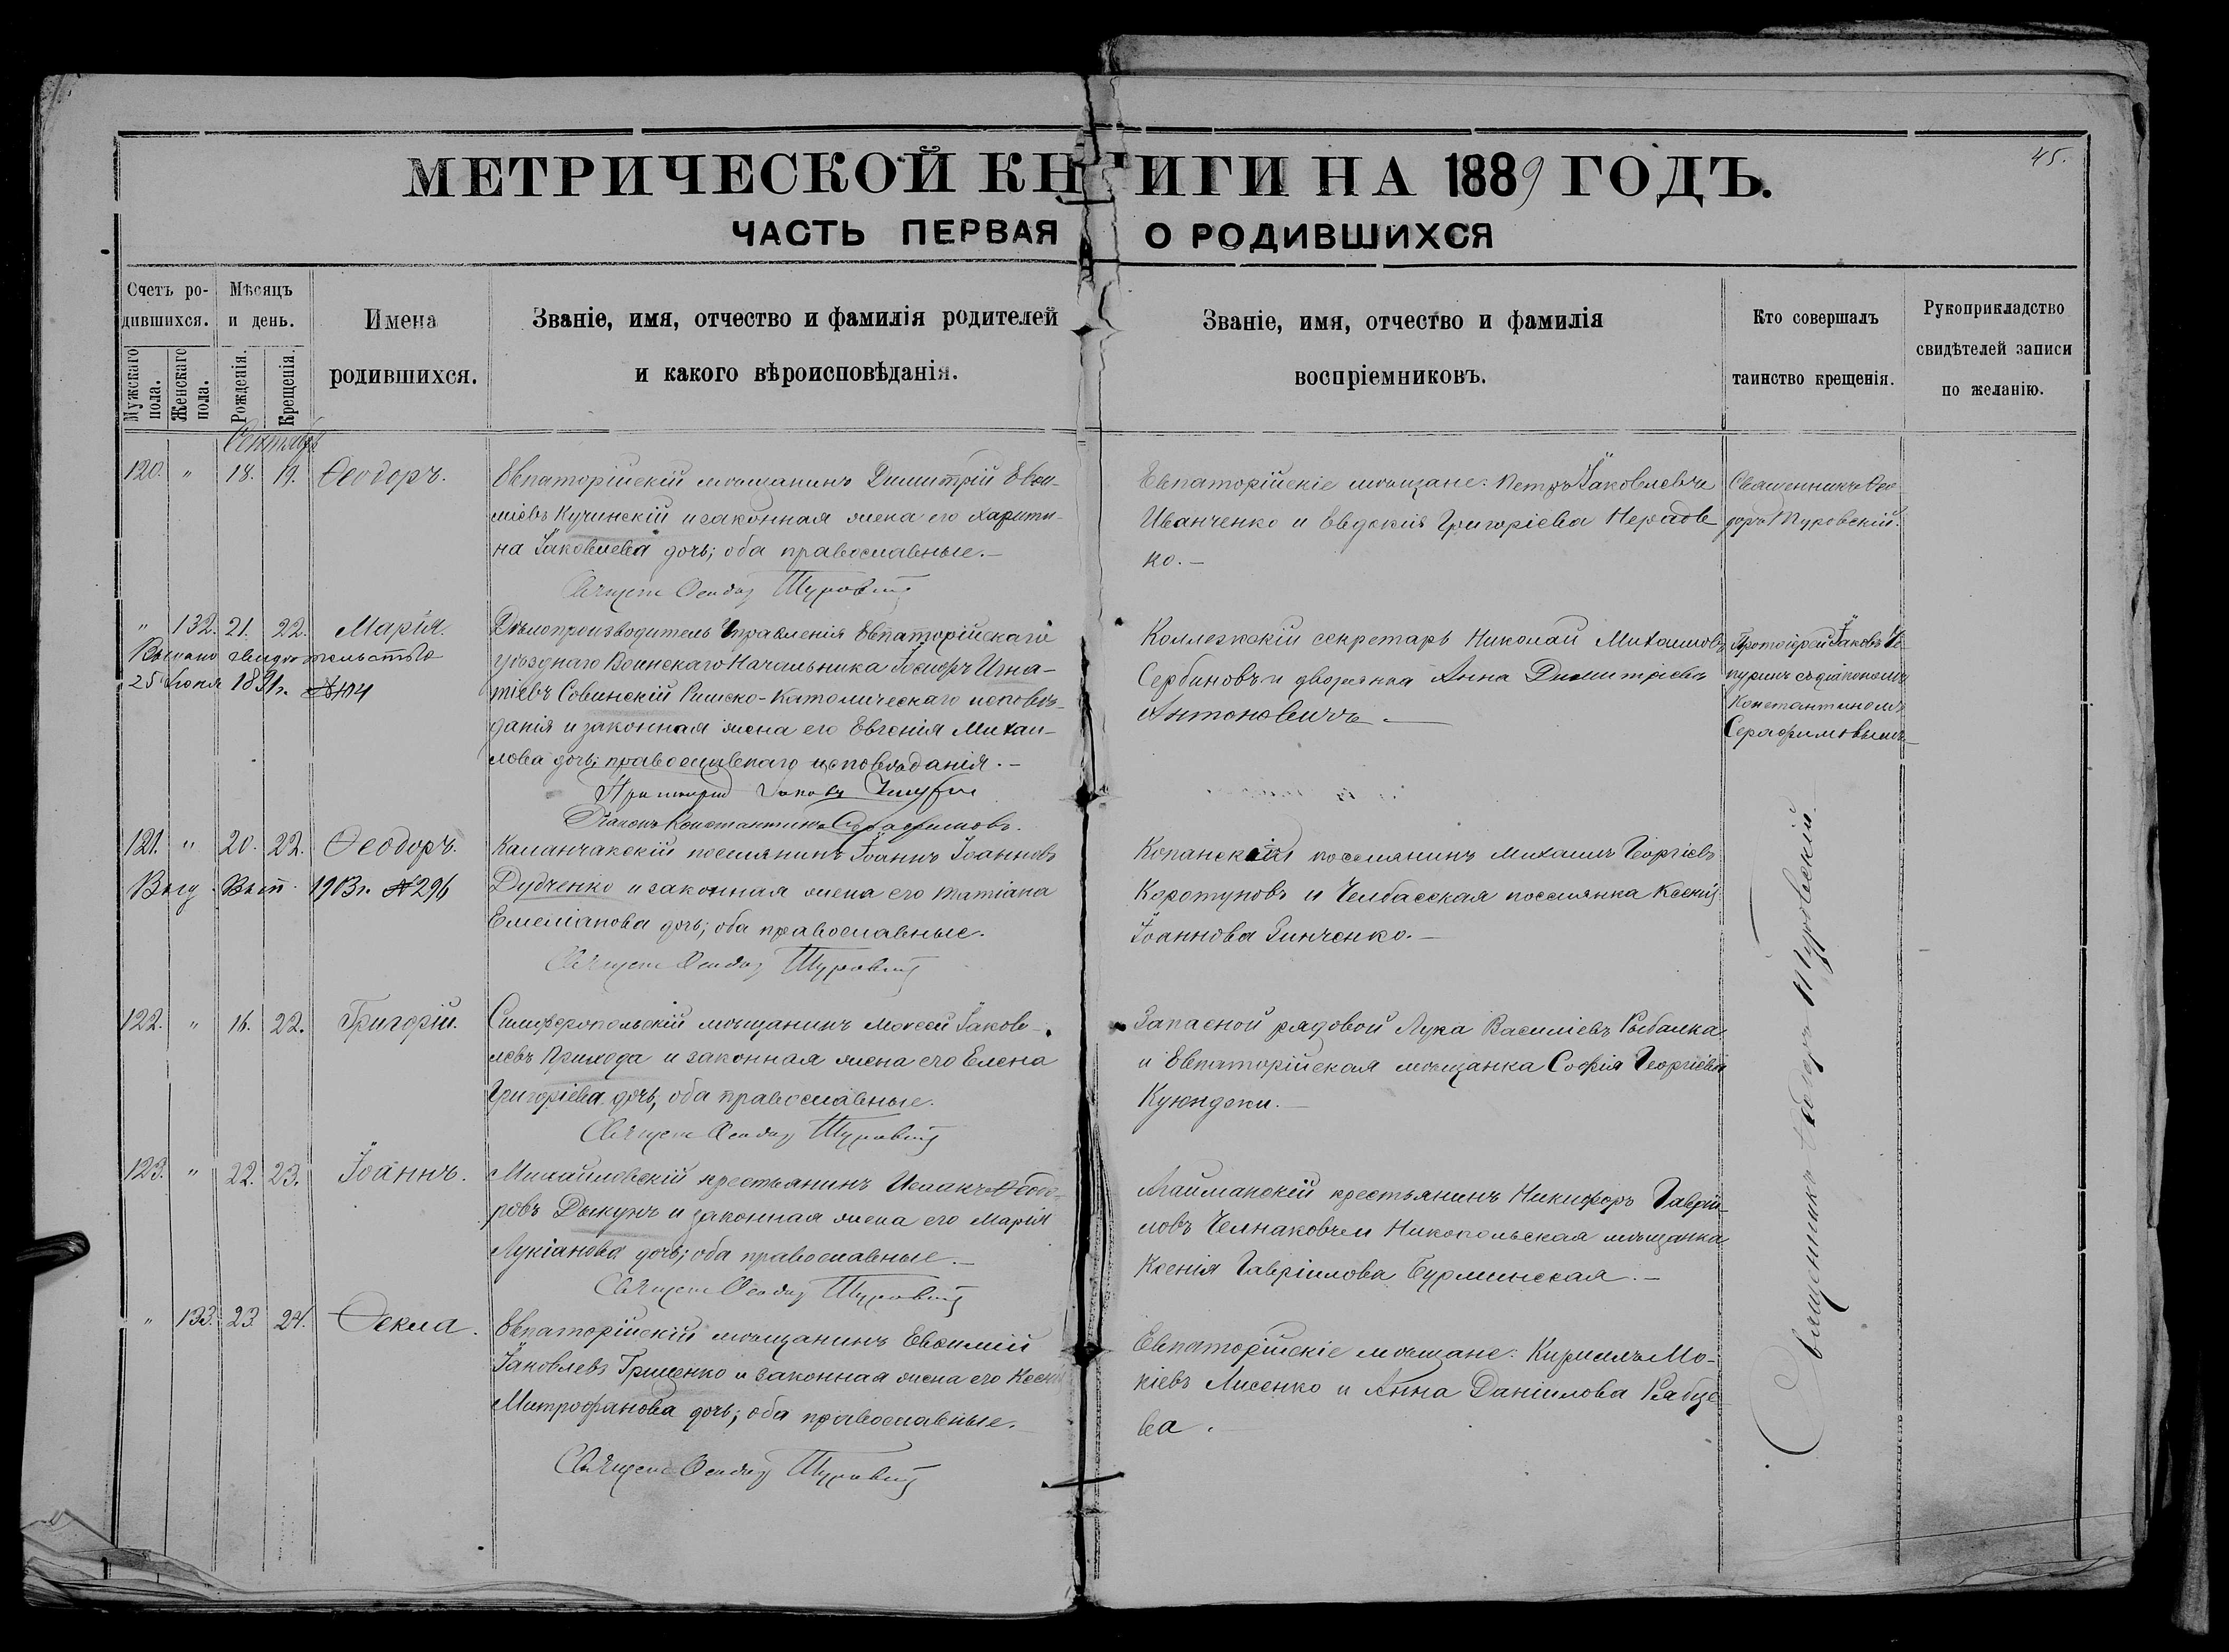 45.
МЕТРИЧЕСКОЙ КНИГИ НА 1889 ГОДЪ.
ЧАСТЬ ПЕРВАЯ О РОДИВШИХСЯ
Счетъ ро-
дившихся.
Мужскаго пола.
Женскаго пола.
Мѣсяцъ
и день.
Рожденія.
Крещенія.
Имена
родившихся.
Званіе, имя, отчество и фамилія родителей
и какого вѣроисповѣданія.
Званіе, имя, отчество и фамилія
воспріемниковъ.
Кто совершалъ
таинство крещенія.
Рукоприкладство
свидѣтелей записи
по желанію.
Сентябрь
120. " 18. 19. Ѳеодоръ.
Евпаторійскій мѣщанинъ Димитрій Евѳи-
міевъ Кучинскій и законная жена его Харити-
на Іаковлева дочь; оба православные.
Священ Ѳеодор Туровскій
Евпаторійскіе мѣщане: Петръ Іаковлевъ
Иванченко и Евдокія Григоріева
ко.
Священникъ Ѳео-
доръ Туровскій.
" 132. 21. 22. Марія.
Выдано свидѣтельство
25 Іюня 1891 г. №
Дѣлопроизводитель Управленія Евпаторійскаго
уѣзднаго Воинскаго Начальника Іосифъ Игна-
тіевъ Совинскій Римско-Католическаго исповѣ-
данія и законная жена его Евгенія Михаи-
лова дочь; православнаго исповѣданія.
Протоіерей Іаковъ Чепуринъ
Діаконъ Константинъ Серафимовъ.
Коллежскій секретарь Николай Михаиловъ
Сербиновъ и дворянка Анна Димитріева
Антоновичъ
Протоіерей Іаковъ Че-
пуринъ съ діакономъ
Константиномъ
Серафимовымъ
121. " 20. 22. Ѳеодоръ.
Выд. 1903 г. № 296
Каланчакскій поселянинъ Іоаннъ Іоанновъ
Дудченко и законная жена его Татіана
Емеліанова дочь; оба православные.
Священ Ѳеодор Туровскій
Копанскій поселянинъ Михаилъ Георгіевъ
Коротуновъ и Челбасская поселянка Ксенія
Іоаннова Зинченко.
122. " 16. 22. Григорій.
Симферопольскій мѣщанинъ Моѵсей Іаков-
левъ Приходa и законная жена его Елена
Григоріева дочь; оба православные.
Священ Ѳеодор Туровскій
Запасной рядовой Лука Василіевъ Рыбалка
и Евпаторійская мѣщанка Софія Георгіева
Куюнджи.
123. " 22. 23. Іоаннъ.
Михайловскій крестьянинъ Исаакъ Ѳеодо-
ровъ Дыкунъ и законная жена его Марія
Лукіанова дочь; оба православные.
Священ Ѳеодор Туровскій
крестьянинъ Никифоръ Гаврiи-
ловъ и Никопольская мѣщанка
Ксенія Гавріилова Бурлинская.
" 133. 23. 24. Ѳекла.
Евпаторійскій мѣщанинъ Евѳимій
Іаковлевъ Гриценко и законная жена его Ксенія
Митрофанова дочь; оба православные.
Священ Ѳеодор Туровскій
Евпаторійскіе мѣщане: Кириллъ Мо-
кіевъ Лисенко и Анна Даніилова Рябце-
ва.
Священникъ Ѳеодоръ Туровскій.